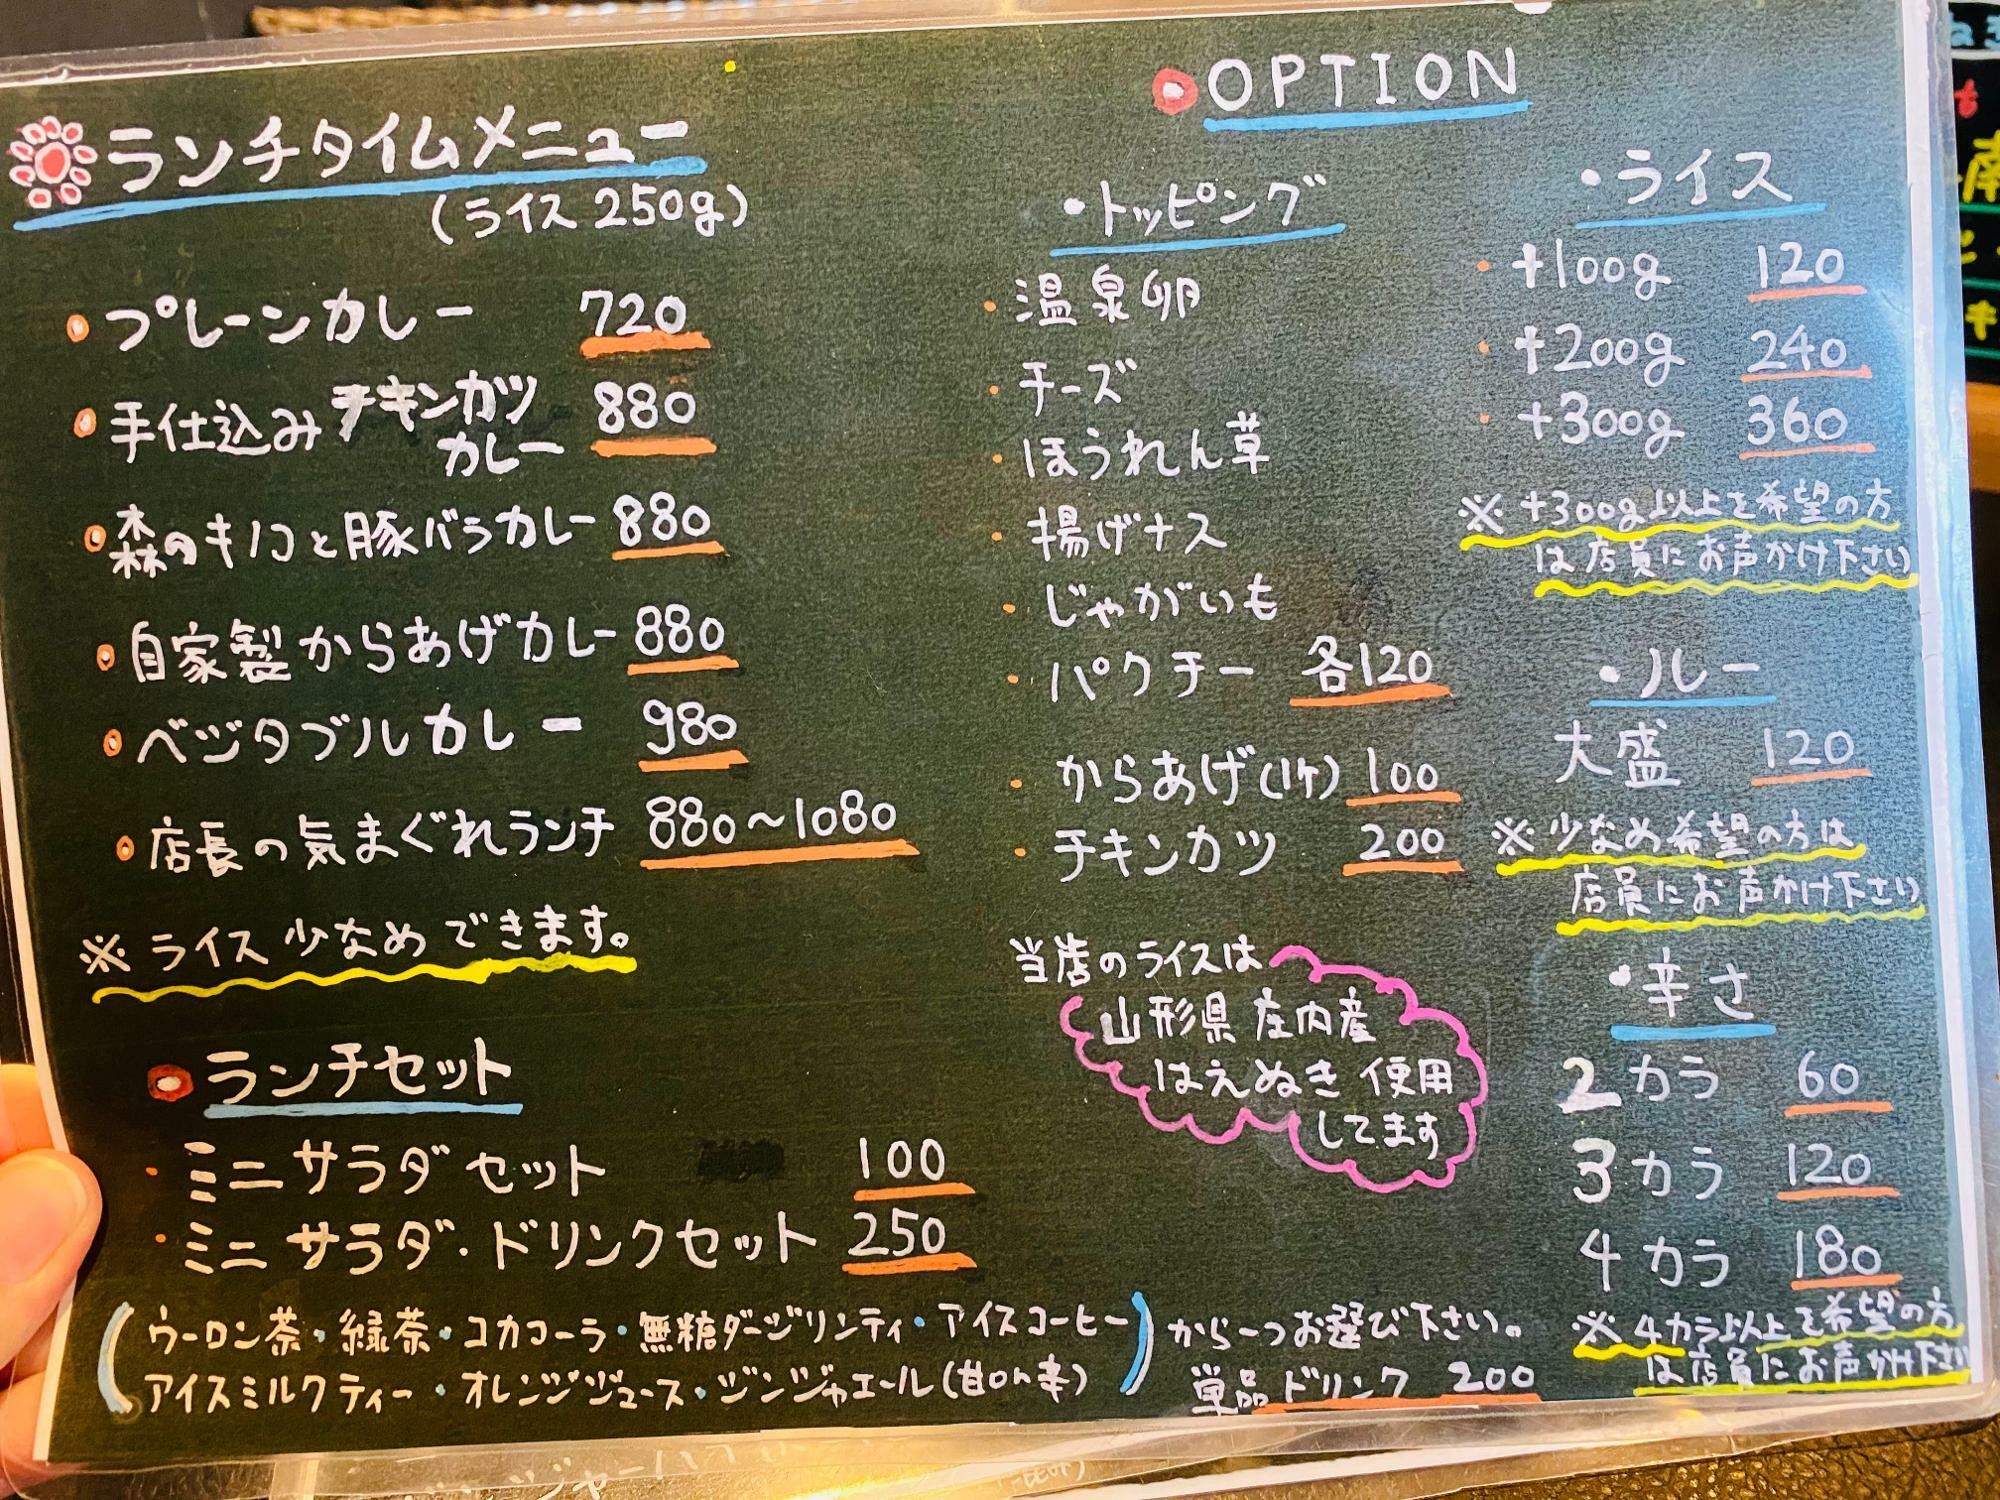 ランチタイムメニュー
(ライス250g)
プレーンカレー 720
手仕込みチキンカツ
カレー 880
森のキノコと豚バラカレー 880
自家製からあげカレー 880
ベジタブルカレー 980
店長の気まぐれランチ 880～1080
※ライス少なめできます。
ランチセット
・ミニサラダセット 100
・ミニサラダ・ドリンクセット 250
(ウーロン茶・緑茶・コカコーラ・無糖ダージリンティ・アイスコーヒー
アイスミルクティー・オレンジジュース・ジンジャエール(甘or辛))
から一つお選び下さい。
単品ドリンク 200
OPTION
・トッピング
・温泉卵
・チーズ
・ほうれん草
・揚げナス
・じゃがいも
・パクチー 各120
・からあげ(1ヶ) 100
・チキンカツ 200
当店のライスは
山形県庄内産
はえぬき使用
してます
・ライス
・+100g 120
・+200g 240
・+300g 360
※+300g以上を希望の方
は店員にお声かけ下さい
・ルー
大盛 120
※少なめ希望の方は
店員にお声かけ下さい
・辛さ
2カラ 60
3カラ 120
4カラ 180
※4カラ以上を希望の方
は店員にお声かけ下さい
南